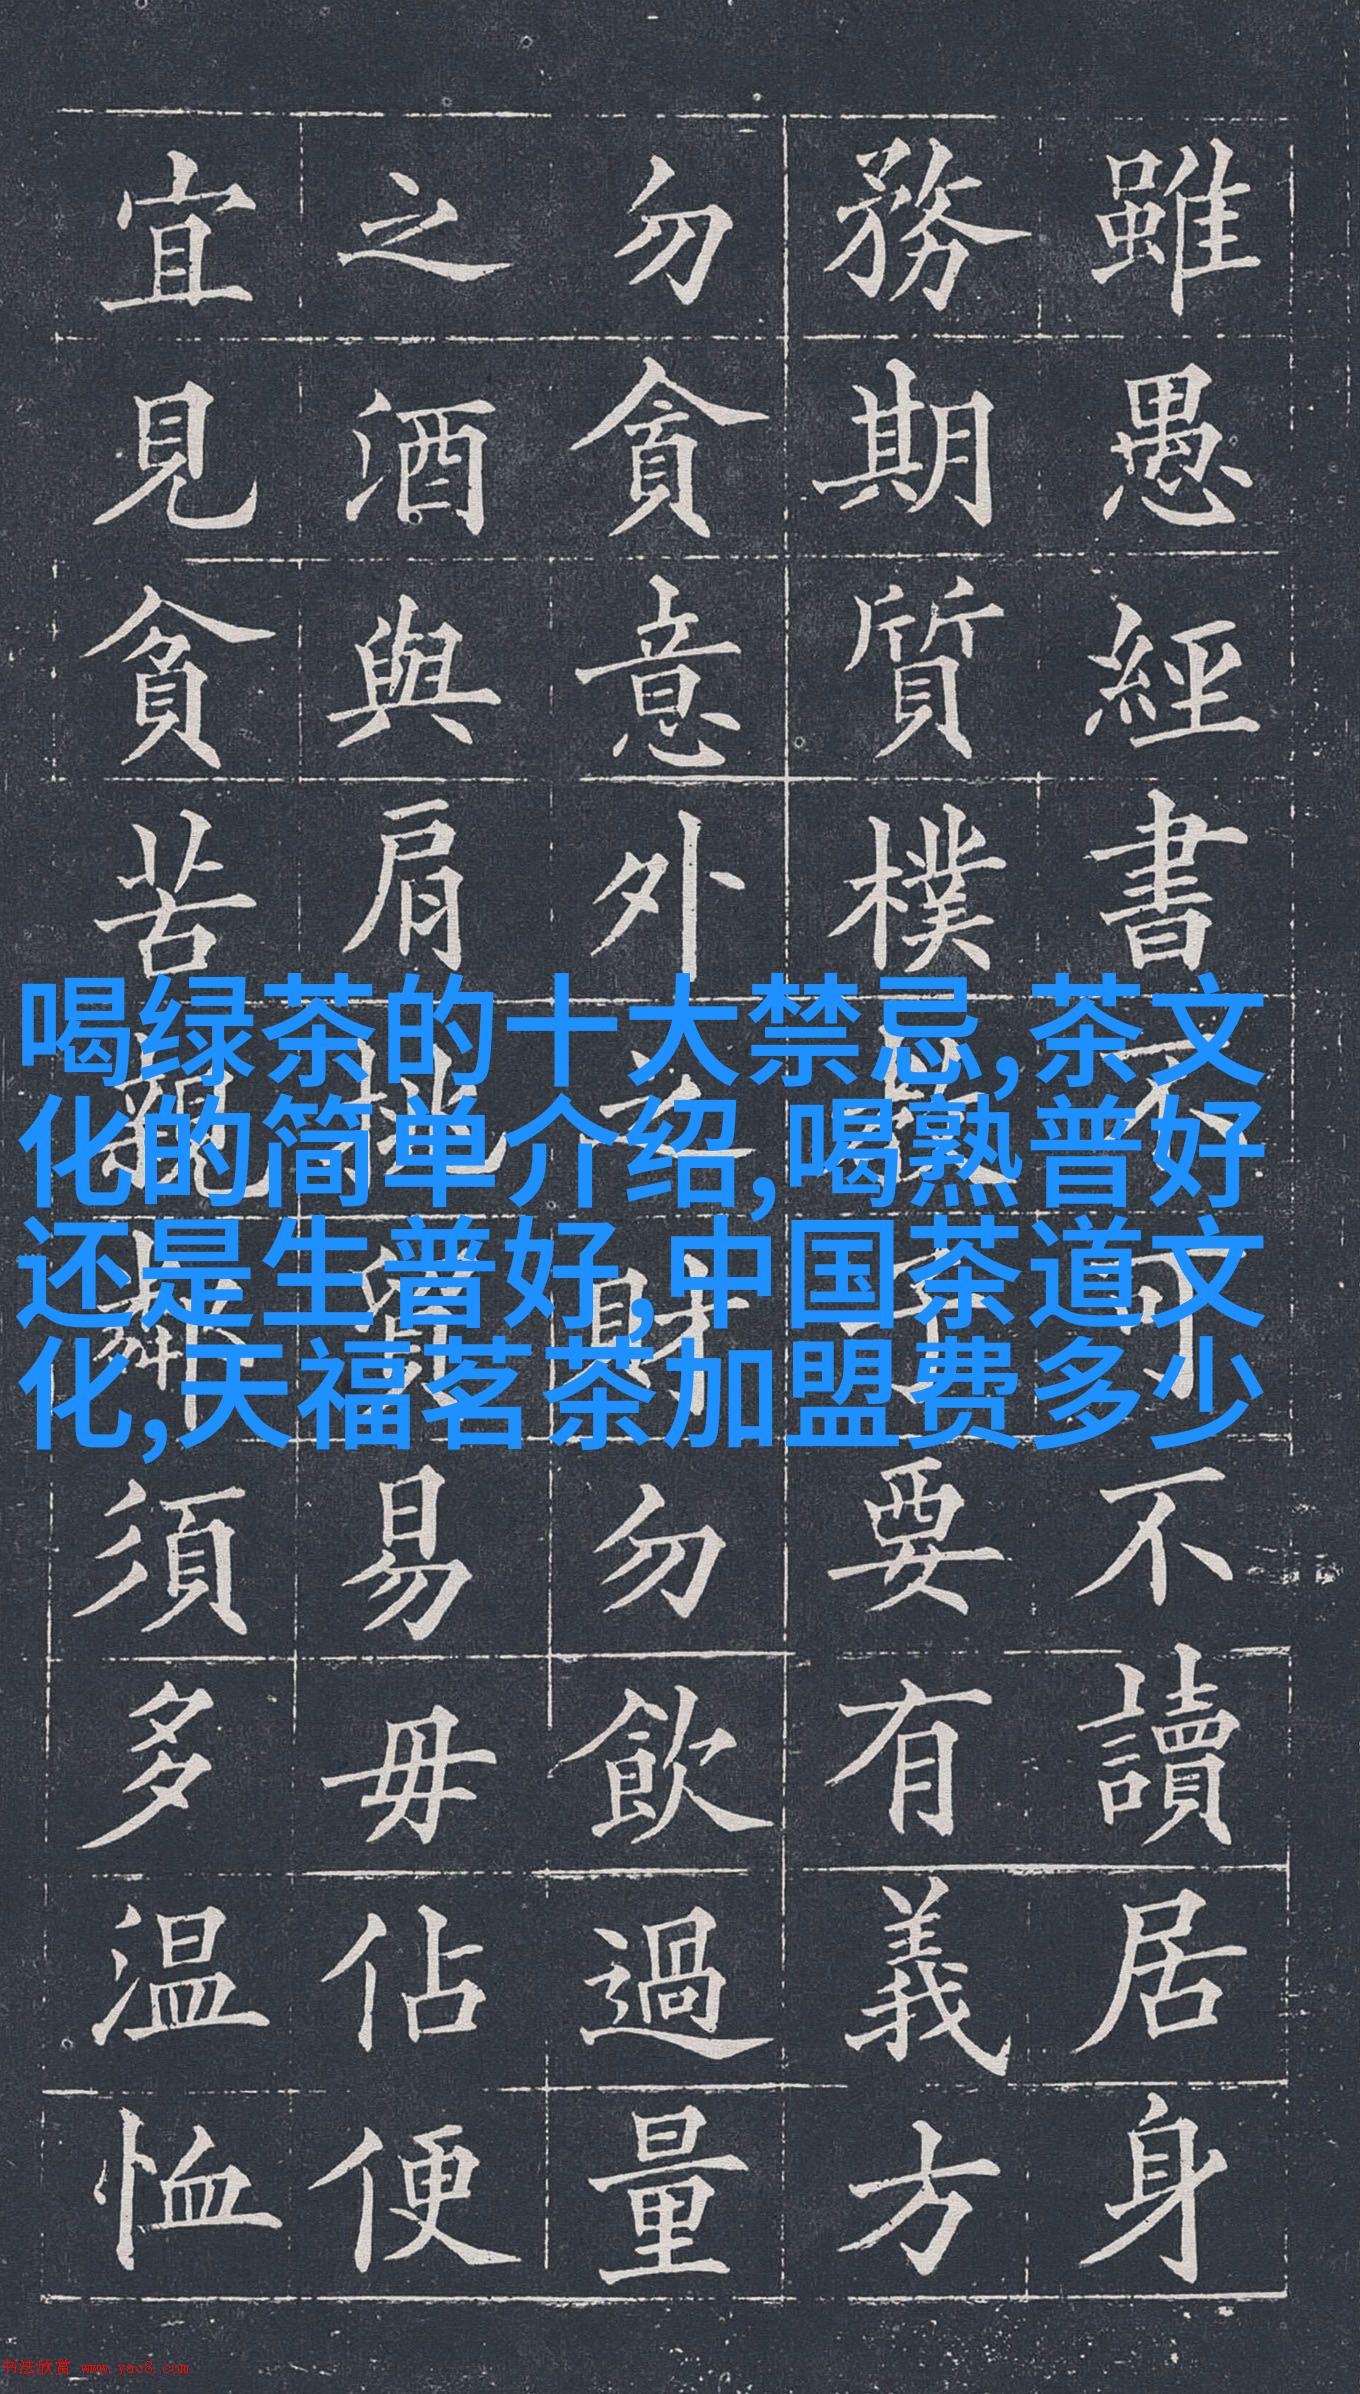 雖愚經書不可不讀居身
務期質樸教子要有義方
勿貪意外之財勿飲過量
之酒與肩挑貿易毋佔便
宜見貧苦親鄰須多温恤
喝绿茶的十大禁忌,茶文
化的简单介绍,喝熟普好
还是生普好,中国茶道文
化,天福茗茶加盟费多少
书法欣赏 www.yac8.com